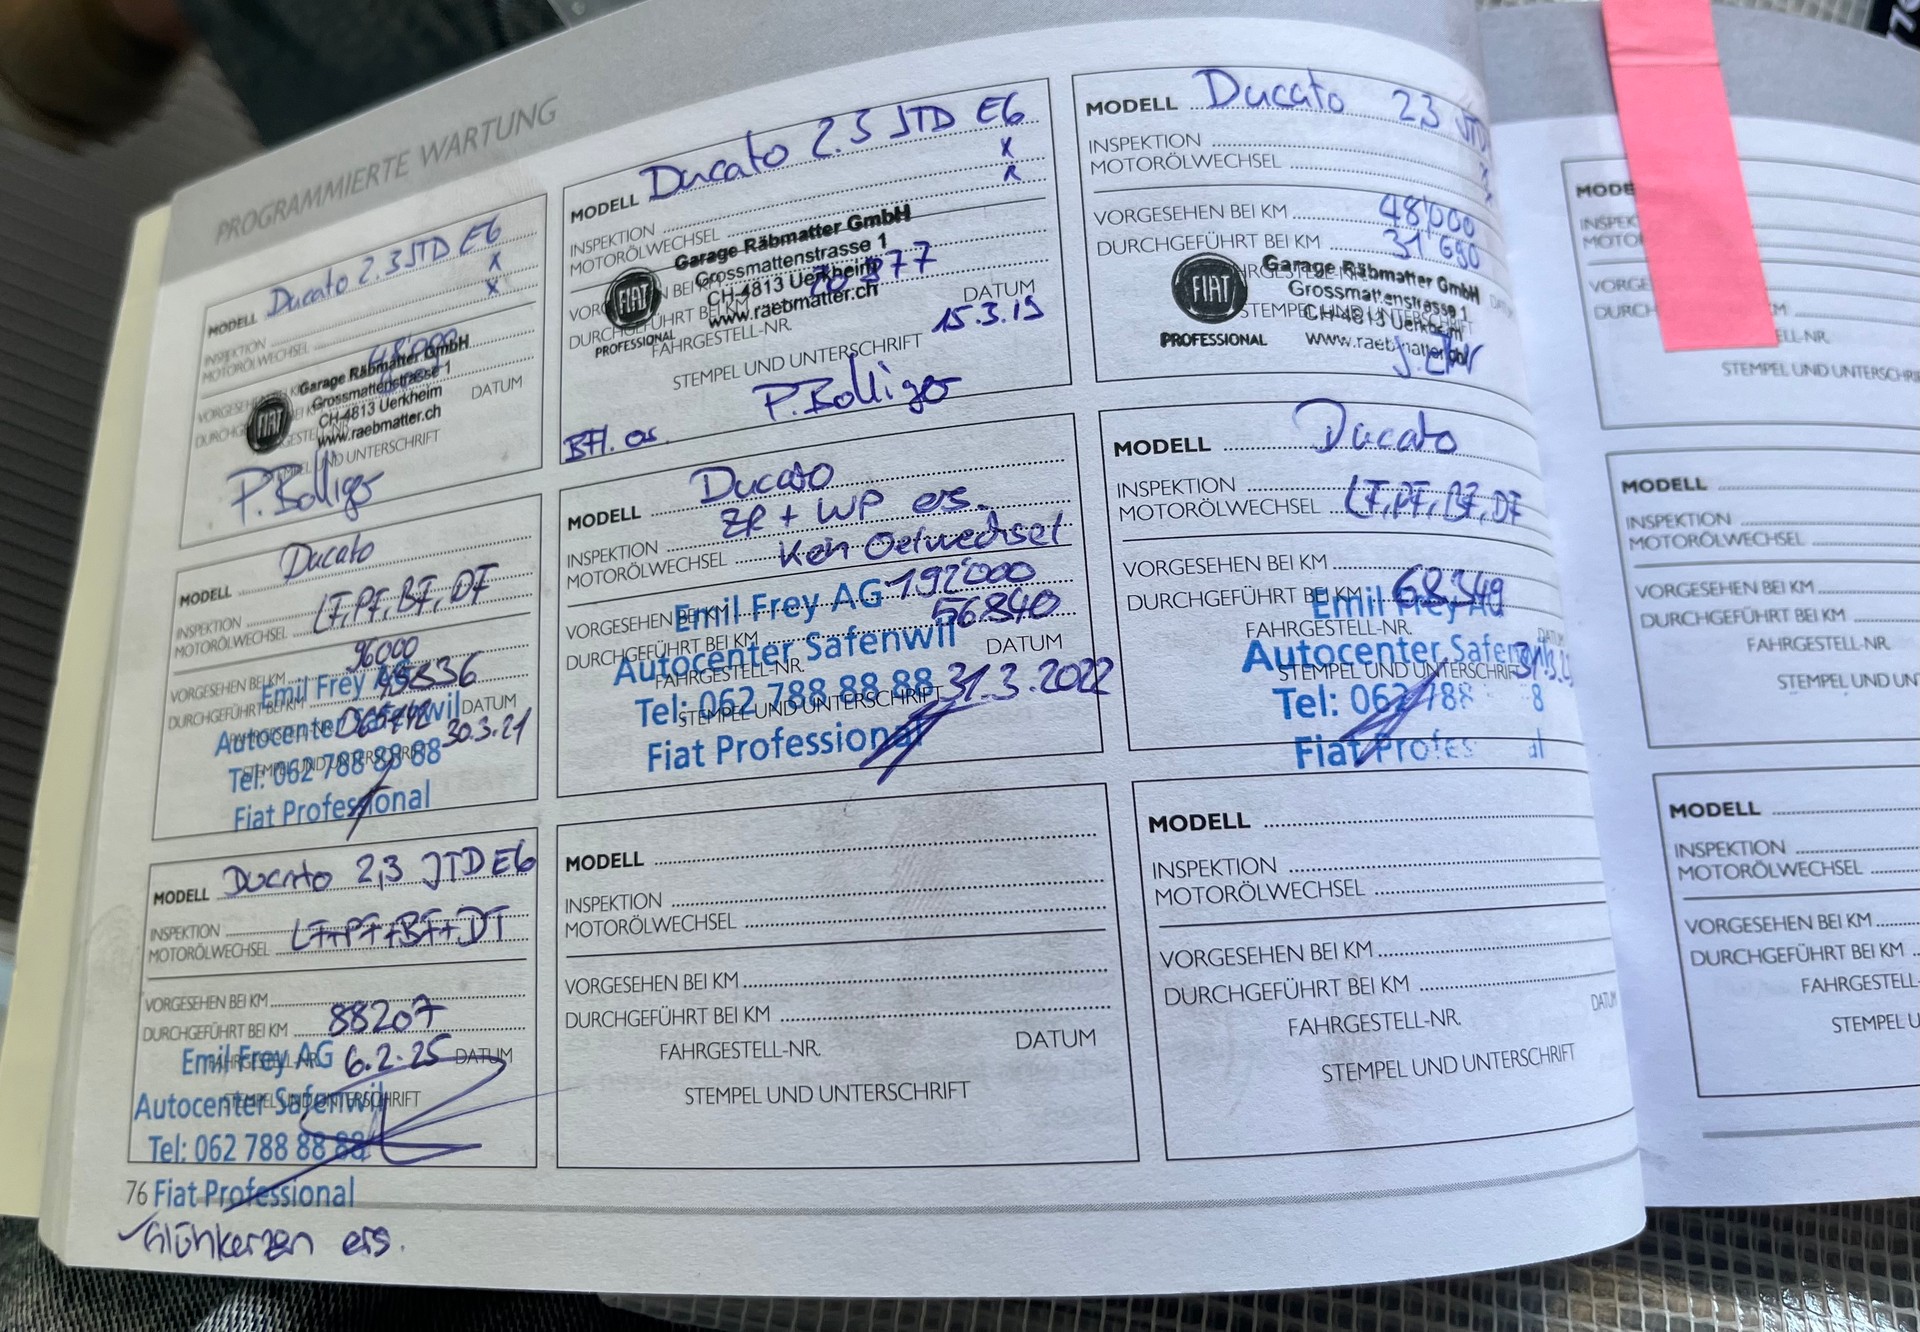 PROGRAMMIERTE WARTUNG
MODELL Ducato 2.3 JTD E6
INSPEKTION x
MOTORÖLWECHSEL x
Garage Räbmatter GmbH
Grossmattenstrasse 1
CH-4813 Uerkheim
www.raebmatter.ch
FIAT
DATUM
P. Bolliger
MODELL Ducato 2.3 JTD E6
INSPEKTION x
MOTORÖLWECHSEL x
Garage Räbmatter GmbH
Grossmattenstrasse 1
CH-4813 Uerkheim
www.raebmatter.ch
FIAT
PROFESSIONAL
DURCHGEFÜHRT BEI KM
FAHRGESTELL-NR.
DATUM
15.3.19
STEMPEL UND UNTERSCHRIFT
P. Bolliger
BFl. os.
MODELL Ducato 2.3 JTD
INSPEKTION x
MOTORÖLWECHSEL x
VORGESEHEN BEI KM 48'000
DURCHGEFÜHRT BEI KM 31'690
Garage Räbmatter GmbH
Grossmattenstrasse 1
CH-4813 Uerkheim
www.raebmatter.ch
FIAT
PROFESSIONAL
STEMPEL UND UNTERSCHRIFT
MODELL Ducato
INSPEKTION LF, PF, BF, DF
MOTORÖLWECHSEL
VORGESEHEN BEI KM 96000
DURCHGEFÜHRT BEI KM
DATUM
30.3.21
Emil Frey AG
Autocenter Safenwil
Tel: 062 788 88 88
Fiat Professional
MODELL Ducato
INSPEKTION ZR + WP ers.
MOTORÖLWECHSEL Kein Oelwechsel
VORGESEHEN BEI KM 192'000
DURCHGEFÜHRT BEI KM 56.840
FAHRGESTELL-NR.
DATUM
31.3.2022
STEMPEL UND UNTERSCHRIFT
Emil Frey AG
Autocenter Safenwil
Tel: 062 788 88 88
Fiat Professional
MODELL Ducato
INSPEKTION LF, PF, BF, DF
MOTORÖLWECHSEL
VORGESEHEN BEI KM
DURCHGEFÜHRT BEI KM 68.349
FAHRGESTELL-NR.
DATUM
STEMPEL UND UNTERSCHRIFT
Emil Frey AG
Autocenter Safenwil
Tel: 062 788 8
Fiat Profes al
MODELL Ducato 2,3 JTD E6
INSPEKTION LF+PF+BF+DT
MOTORÖLWECHSEL
VORGESEHEN BEI KM
DURCHGEFÜHRT BEI KM 88207
FAHRGESTELL-NR. 6.2.25 DATUM
STEMPEL UND UNTERSCHRIFT
Emil Frey AG
Autocenter Safenwil
Tel: 062 788 88 88
Fiat Professional
76
Glühkerzen ers.
MODELL
INSPEKTION
MOTORÖLWECHSEL
VORGESEHEN BEI KM
DURCHGEFÜHRT BEI KM
FAHRGESTELL-NR.
DATUM
STEMPEL UND UNTERSCHRIFT
MODELL
INSPEKTION
MOTORÖLWECHSEL
VORGESEHEN BEI KM
DURCHGEFÜHRT BEI KM
FAHRGESTELL-NR.
DATUM
STEMPEL UND UNTERSCHRIFT
MODE
INSPEK
MOTO
VORGE
DURCH
ELL-NR.
STEMPEL UND UNTERSCHRI
MODELL
INSPEKTION
MOTORÖLWECHSEL
VORGESEHEN BEI KM
DURCHGEFÜHRT BEI KM
FAHRGESTELL-NR.
STEMPEL UND UNT
MODELL
INSPEKTION
MOTORÖLWECHSEL
VORGESEHEN BEI KM
DURCHGEFÜHRT BEI KM
FAHRGESTELL-
STEMPEL U